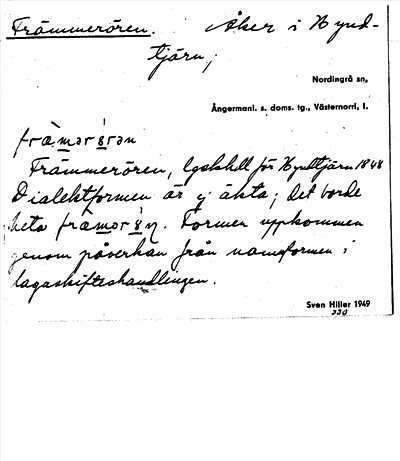 Främmerören. Åker i Hynd-
tjärn,
Nordingrå sn,
Ångermanl. s. doms. tg., Västernorrl. l.
Främmerören, lgskhdl för Hyndtjärn 1848
Dialektformen är ej äkta; det borde
heta Formen uppkommen
genom påverkan från namnformen i
lagaskifteshandlingen.
Sven Hiller 1949
330